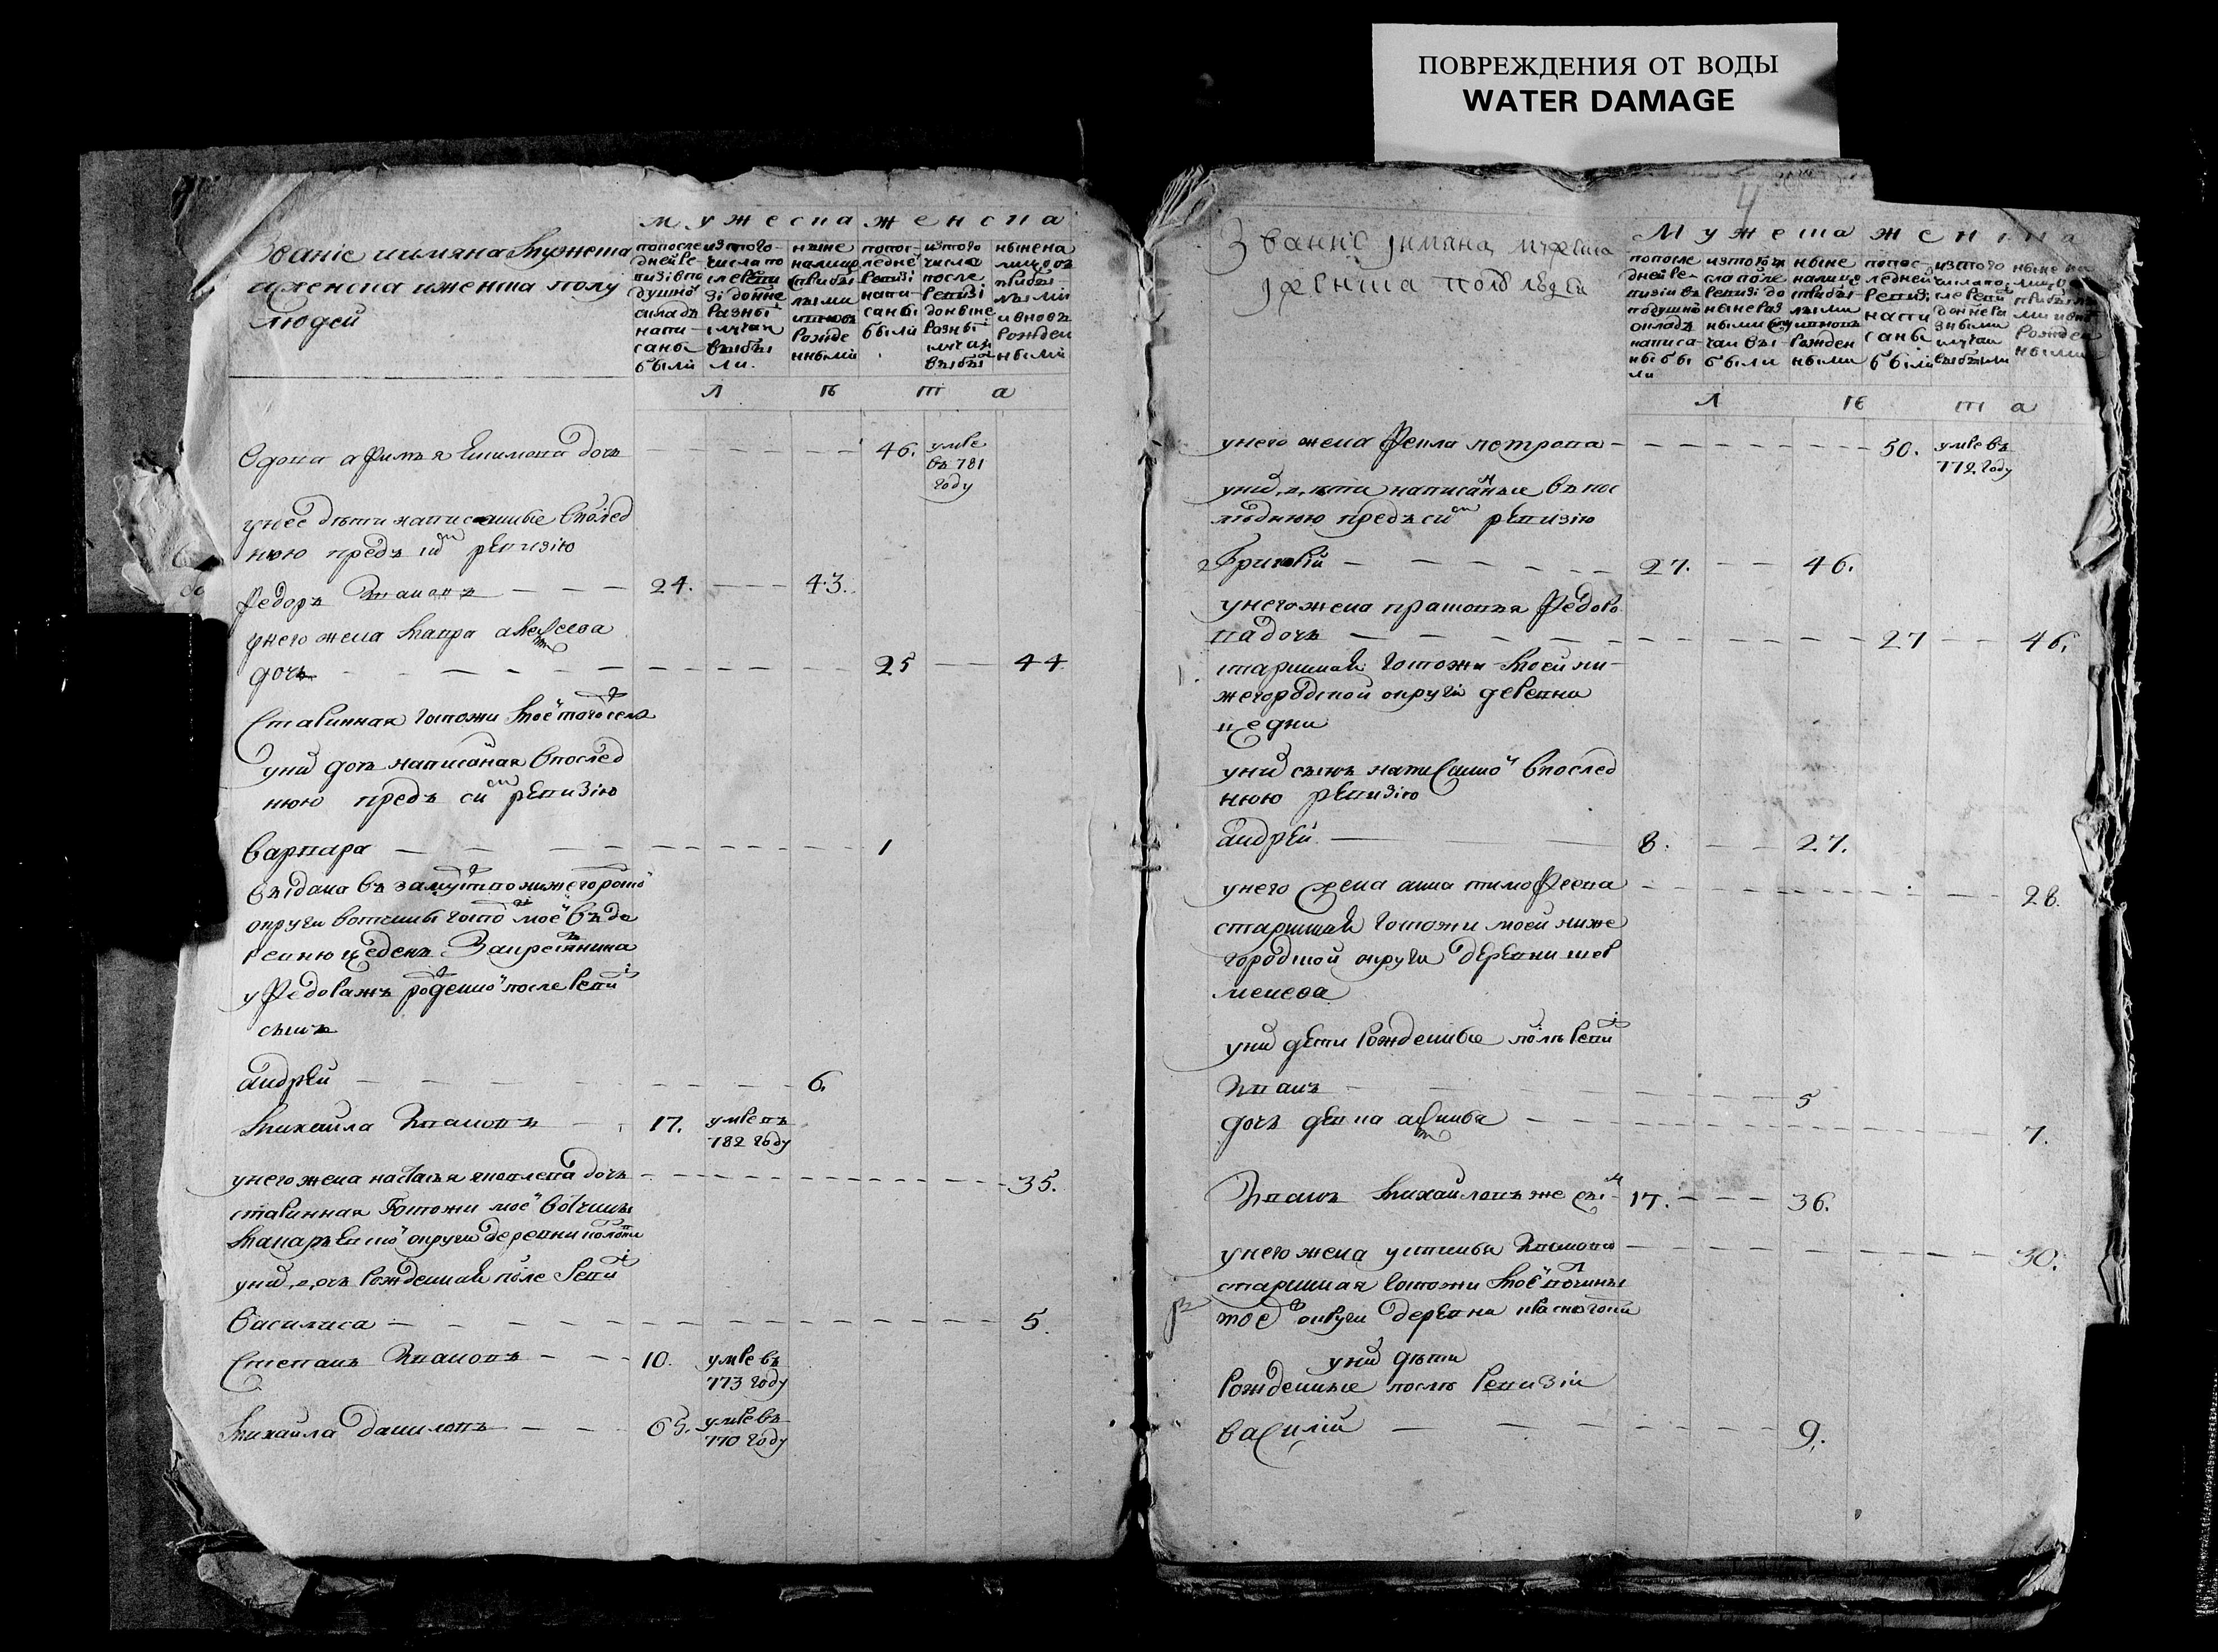 ПОВРЕЖДЕНИЯ ОТ ВОДЫ
WATER DAMAGE
мужеска женска
Званіе и имяна мужеска
и женска полу
людей
по после
дней ре
визіи в по
душно
окладъ
напи
саны
были
из того
числа по
сле реви
зі до ныне
разны
случаи
выбы
ли.
ныне
на лицо
с прибы
лыми
и вновь
рожде
нными
по пос
ледне
ревизі
напи
саны
были
из того
числа
после
ревизі
до ныне
разны
случаи
выбы
ныне на
лицо съ
прибы
лыми
и вновь
рожден
ными
лѣта
Вдова афимья екимова дочь 46. умре въ 781 году
у нее дѣти написанные в послед
нюю предъ сей ревизію
Федоръ Ивановъ 24. 43.
у него жена мавра алексеева
дочь 25 44
старинная госпожи моей того села
у них дочь написаная в послед
нюю предъ сею ревизію
варвара 1
выдана въ замужство нижегороцкой
округи вотчины госпожи моей въ де
ревню цедень за крестьянина
у Федора жъ рожденной после ревизіи
сынъ
андрей 6.
михайла Ивановъ 17. умре въ 782 году
у него жена настасья яковлева дочь 35.
старинная госпожи моей вотчины
макарьевской округи деревни
у них дочь рожденная после ревизіи
василиса 5.
Степанъ Ивановъ 10. умре въ 773 году
михайла даниловъ 65. умре въ 770 году
4
мужеска женска
Званіе и имяна мужеска
и женска полу людей
по после
дней ре
визіи въ
подушно
окладъ
написа
ны бы
ли
из того чи
сла после
ревизі до
ныне раз
ными слу
чаи вы
были
ныне
на лице
с прибы
лыми
и вновь
рожден
ными
по пос
ледней
ревизі
напи
саны
были
из того
числа по
сле реви
до ныне ра
зными
случаи
выбыли
ныне на
лицо
прибылы
ми и вно
рожден
ными
лѣта
у него жена Фекла петрова 50. умре въ 772 году
у них дѣти написанные въ пос
лѣднюю предъ сею ревизію
Григорій 27. 46.
у него жена прасковья Федоро
ва дочь 27 46.
старинная госпожи моей ни
жегородской округи деревни
цедни
у них сынъ написанной в послед
нюю ревизію
андрей 8. 27.
у него жена анна тимофеева 28.
старинная госпожи моей ниже
городской округи деревни шел
менева
у них дети рожденные послѣ ревизіи
Иванъ 5
дочь девка аксинья 7.
Иванъ михайловъ же сынъ 17. 36.
у него жена устинья Иванова 30.
старинная госпожи моей вотчины
той округи деревни
у них дѣти
рожденные послѣ ревизіи
василій 9.